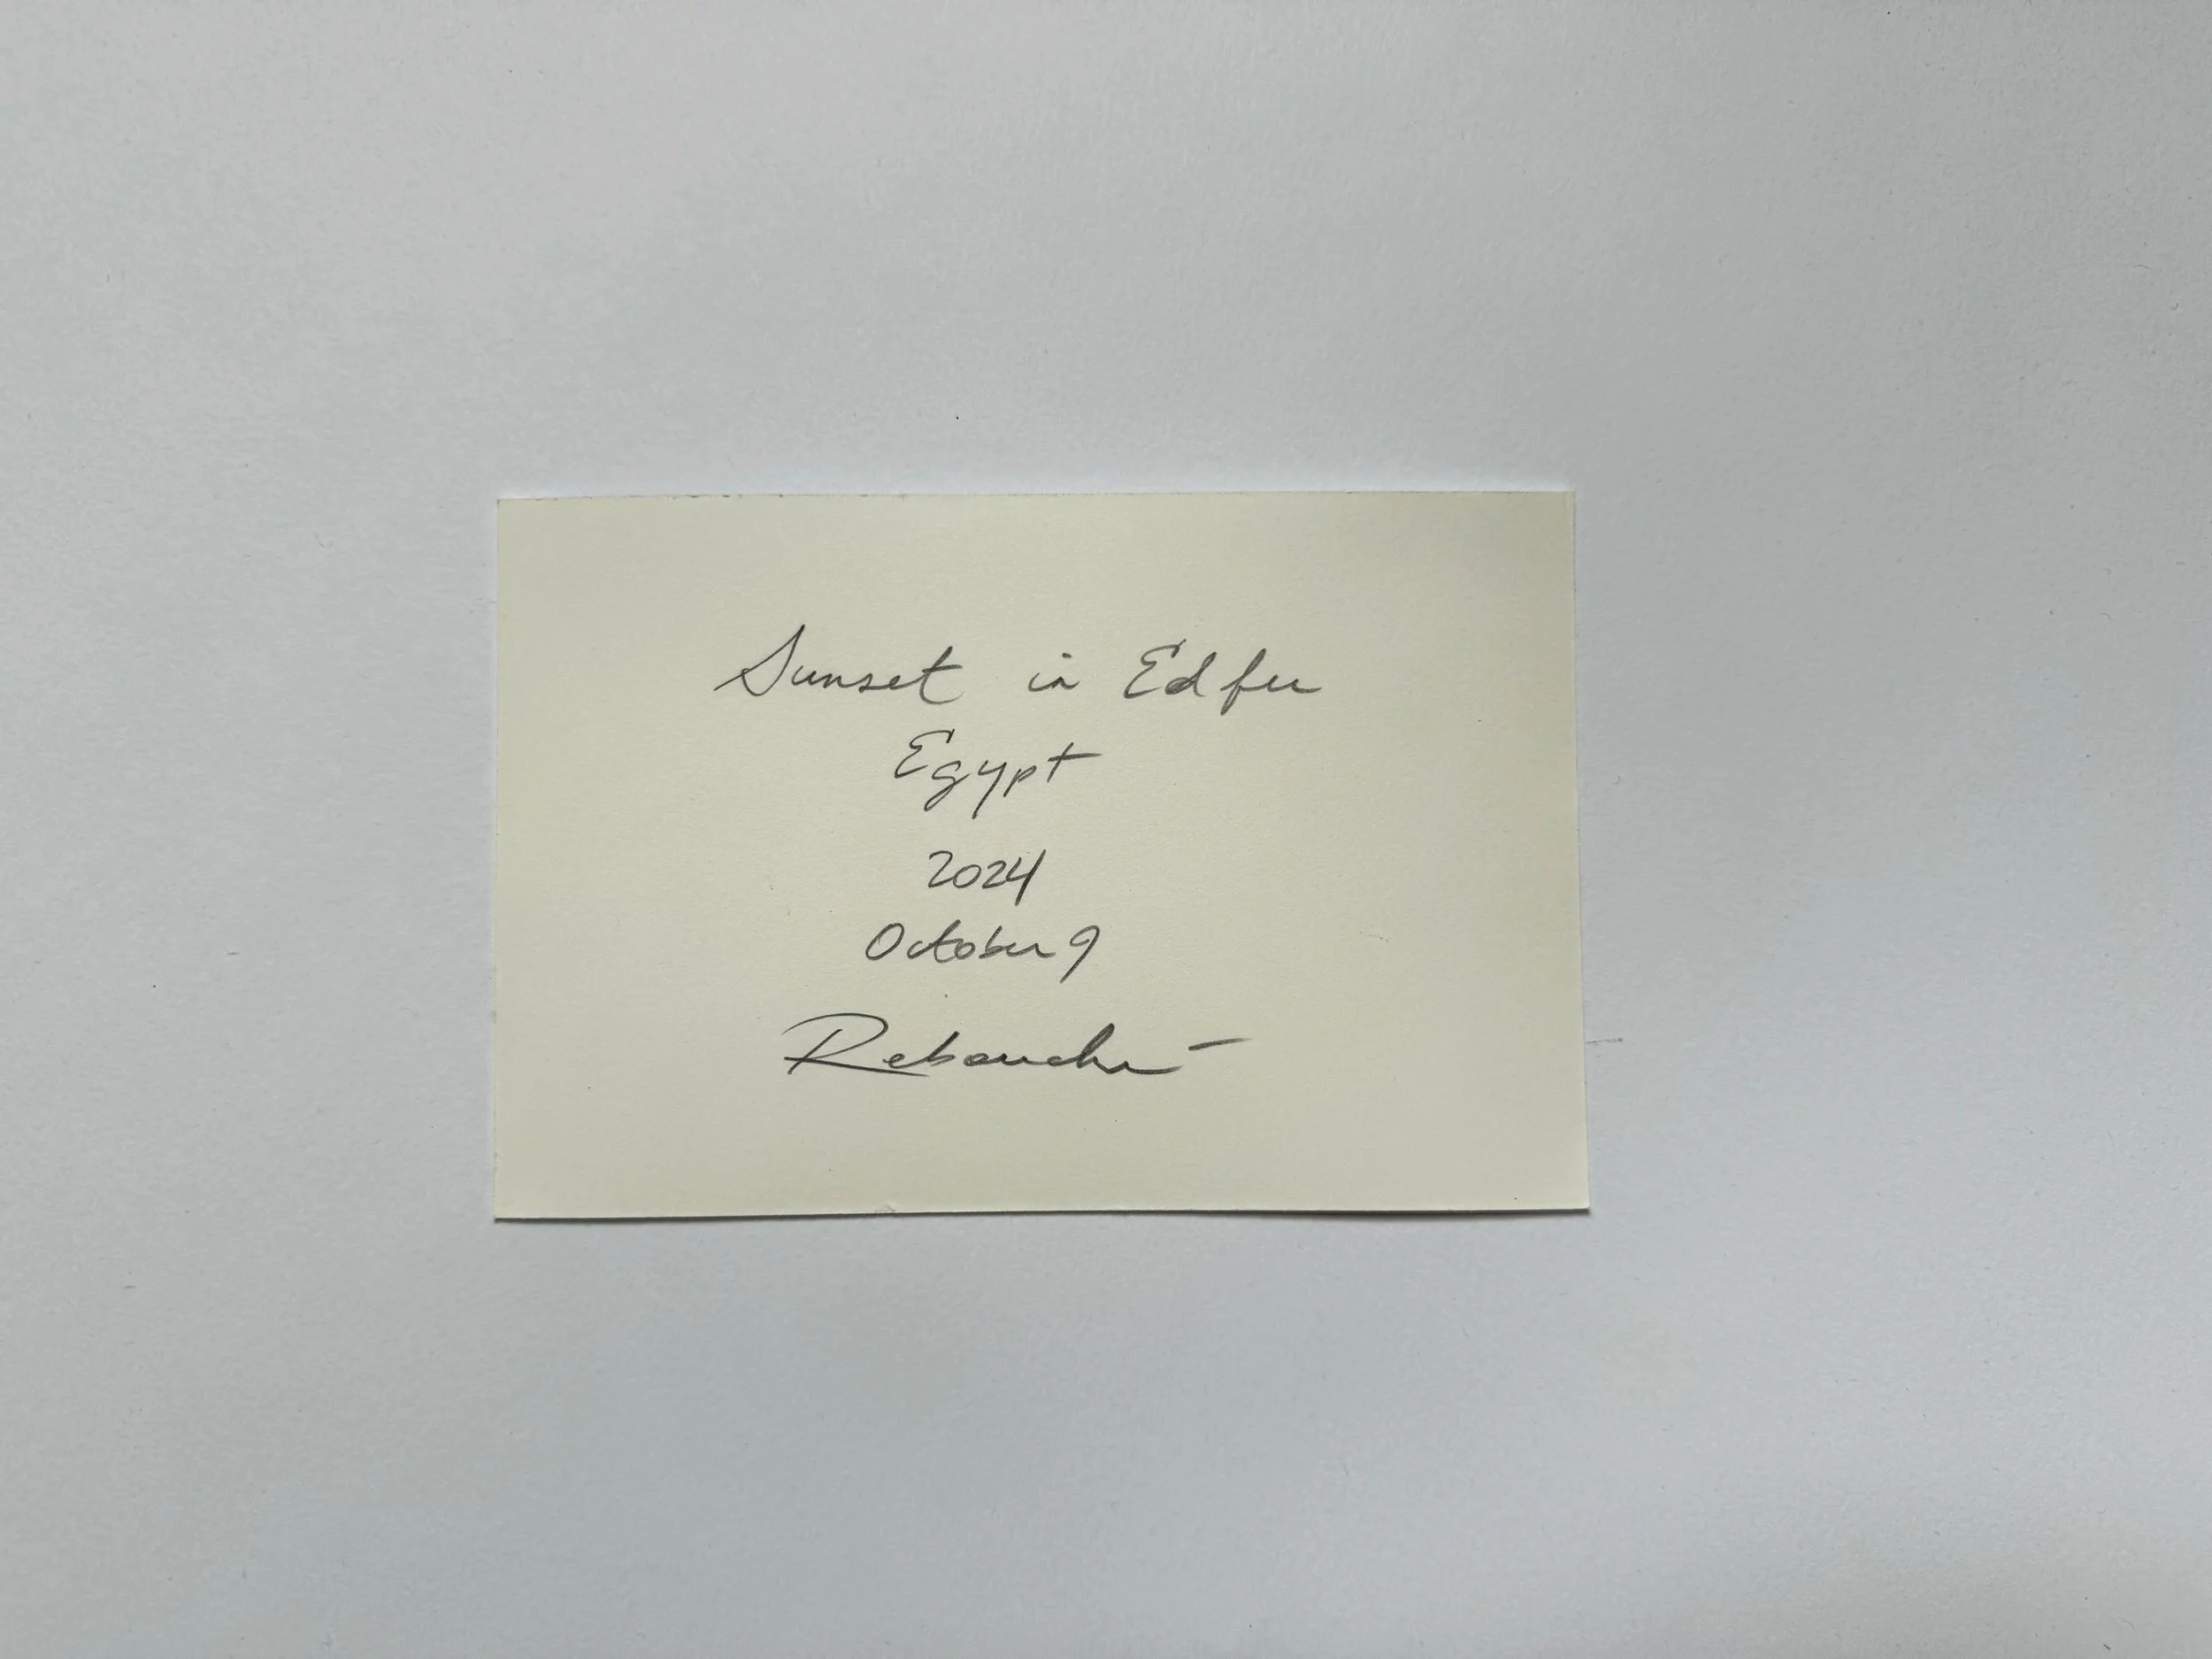 Sunset in Edfu
Egypt
2024
October 9